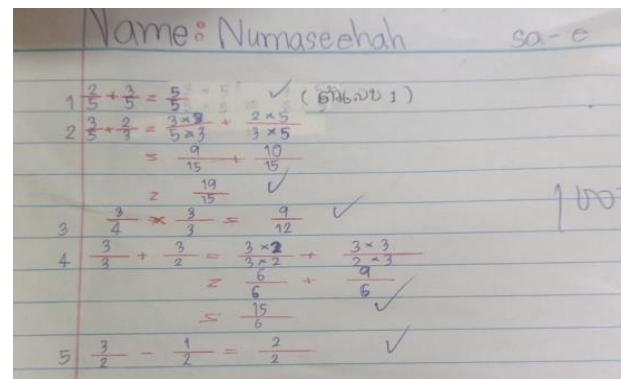 Name: Numaseehah sa-e
1 2/5 + 3/5 = 5/5 ✓ (ตัวเลข 1)
2 3/5 + 2/3 = 3×3/5×3 + 2×5/3×5
= 9/15 + 10/15
= 19/15 ✓
3 3/4 × 3/3 = 9/12 ✓
4 3/3 + 3/2 = 3×2/3×2 + 3×3/2×3
= 6/6 + 9/6
= 15/6 ✓
5 3/2 - 1/2 = 2/2 ✓